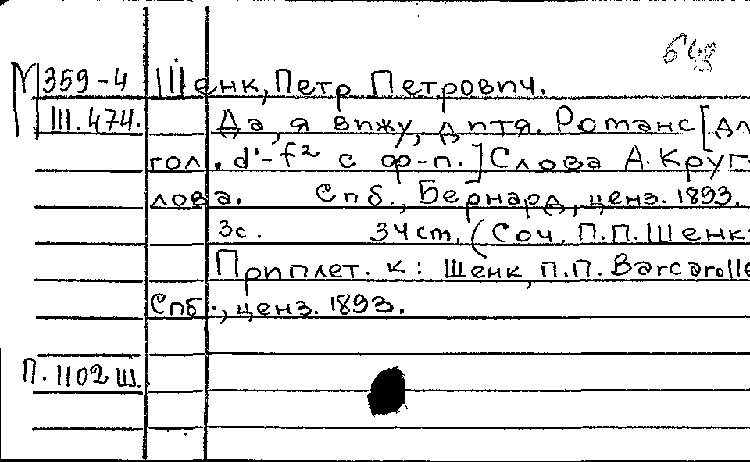 М 359-4 Шенк, Петр Петрович.
Ш.474. Да, я вижу, дитя. Романс [Дл
гол. d¹-f² с ф-п.] Слова А. Круг
лова. Спб., Бернард, ценз. 1893.
3с. 34см. (Соч. П.П. Шенк
Приплет. к: Шенк, П.П. Barcarolle
Спб., ценз. 1893.
П. 1102 Ш.